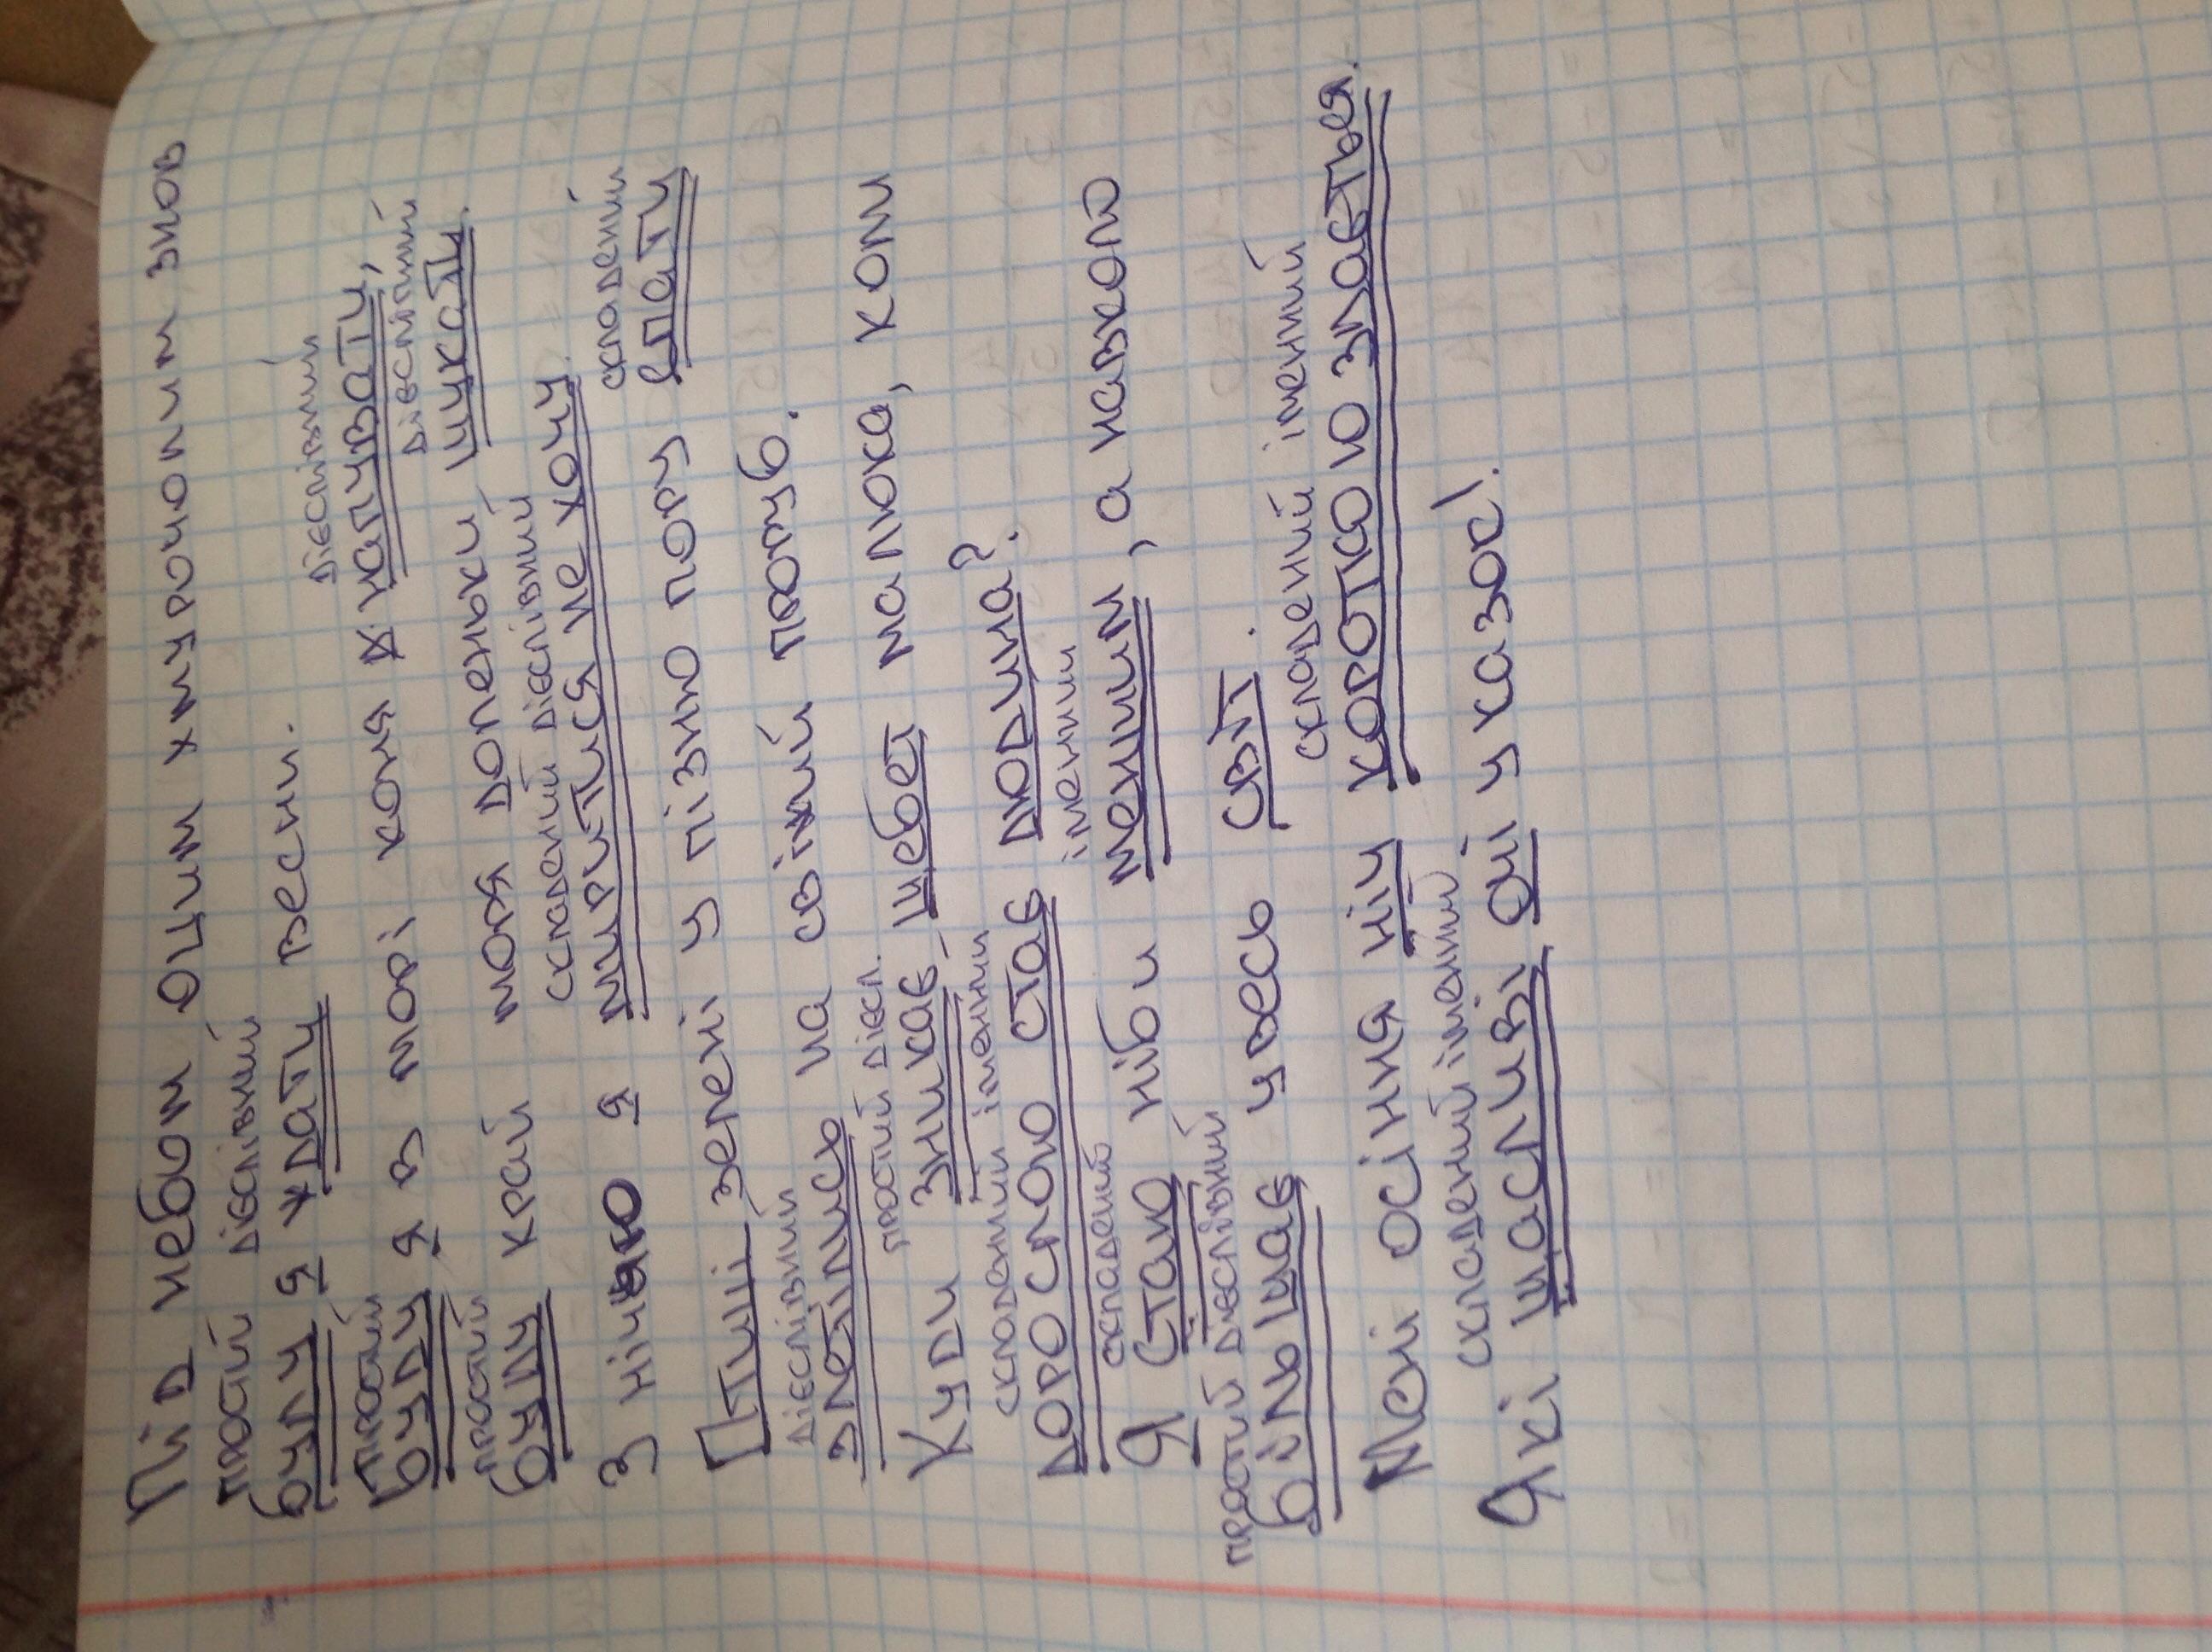 Під небом оцим хмурочолим знов
простий дієслівний
буду я ждати весни.
простий дієслівний
Буду я в морі коня напувати,
простий дієслівний
буду край моря доленьки шукати.
складений дієслівний
З ніччю я миритися не хочу.
складений
Птиці зелені у пізню пору спати
дієслівний
злетілись на свіжий проруб.
простий дієсл.
Куди зникає щебет малюка, коли
складений іменний
дорослою стає людина?
складений іменний
Я стаю ніби меншим, а навколо
простий дієслівний
більшає увесь світ.
складений іменний
Мені осіння ніч короткою здається.
складений іменний
Які щасливі очі у казок!